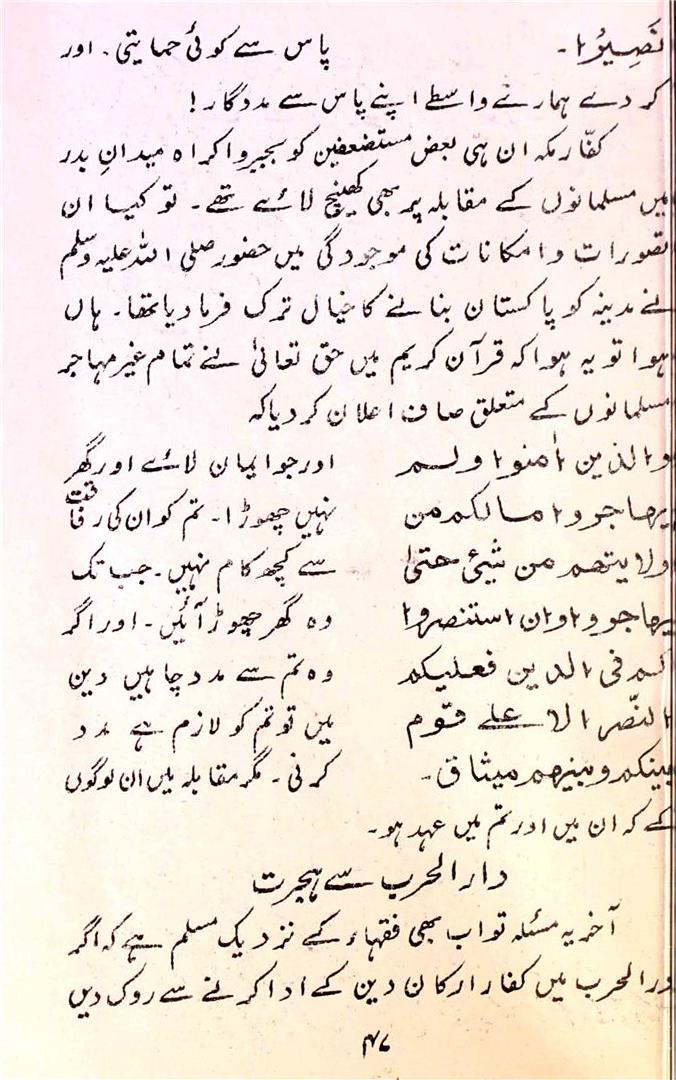 نَصِيرًا۔ پاس سے کوئی حمایتی۔ اور
کر دے ہمارے واسطے اپنے پاس سے مددگار!
کفّارِ مکہ ان ہی بعض مستضعفین کو بجبر و اکراہ میدانِ بدر
میں مسلمانوں کے مقابلہ پر بھی کھینچ لائے تھے۔ تو کیا ان
تصورات و امکانات کی موجودگی میں حضور صلی اللہ علیہ وسلم
نے مدینہ کو پاکستان بنانے کا خیال ترک فرما دیا تھا۔ ہاں
ہوا تو یہ ہوا کہ قرآن کریم میں حق تعالیٰ نے تمام غیر مہاجر
مسلمانوں کے متعلق صاف اعلان کر دیا کہ
والذین اٰمنوا ولم اور جو ایمان لائے اور گھر
یھاجروا مالکم من نہیں چھوڑا۔ تم کو ان کی رفاقت
ولایتھم من شیئ حتیٰ سے کچھ کام نہیں۔ جب تک
یھاجروا وان استنصروا وہ گھر چھوڑ آئیں۔ اور اگر
کم فی الدین فعلیکم وہ تم سے مدد چاہیں دین
النّصر الا علیٰ قوم میں تو تم کو لازم ہے مدد
بینکم وبینھم میثاق۔ کرنی۔ مگر مقابلہ میں ان لوگوں
کے کہ ان میں اور تم میں عہد ہو۔
دار الحرب سے ہجرت
آخر یہ مسئلہ تو اب بھی فقہاء کے نزدیک مسلم ہے کہ اگر
دار الحرب میں کفار ارکان دین کے ادا کرنے سے روک دیں
۴۷